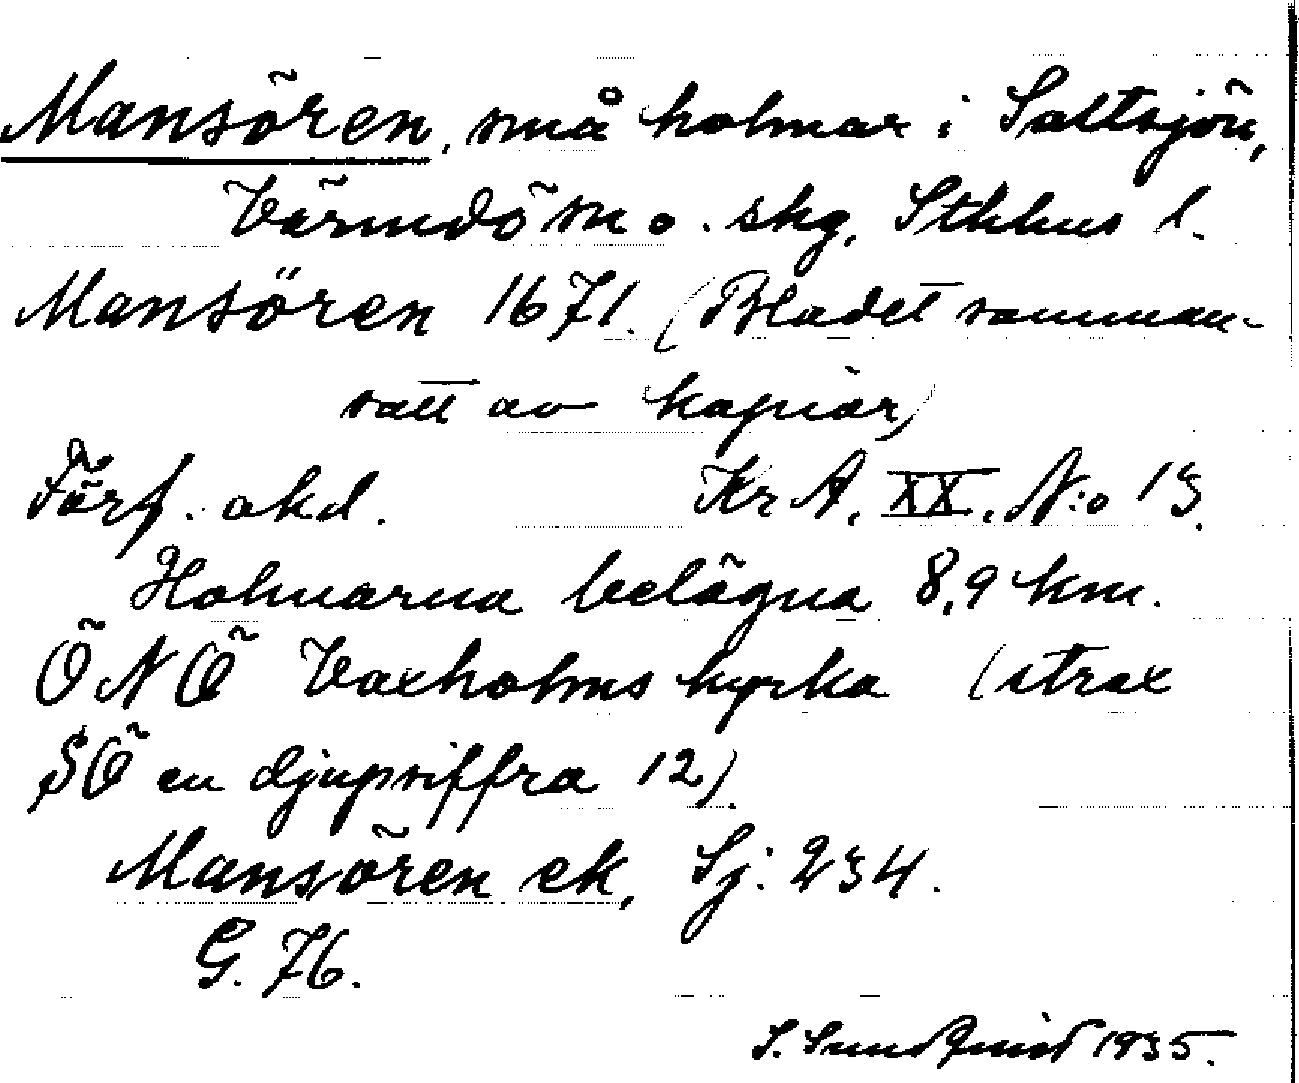 Mansören, små holmar i Saltsjön,
Värmdö sn o. skg, Sthlms l.
Mansören 1671. (Bladet samman-
satt av kopior)
Förf. okd. Kr A. XX. N:o 13.
Holmarna belägna 8,9 km.
ÖNÖ Vaxholms kyrka (strax
SÖ en djupsiffra 12).
Mansören ek, Sj: 234.
G. 76.
S. Sundqvist 1935.